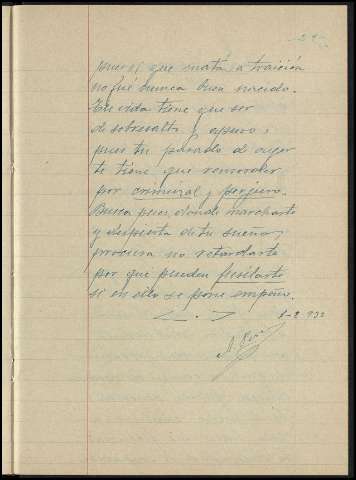 pues el que mata a traición
no fué nunca bien nacido.
Tu vida tiene que ser
de sobresalto y apuro,
pues tu pasado de ayer
te tiene que remorder
por criminal y perjuro.
Busca pues, donde marcharte
y despierta de tu sueño,
procura no retardarte
por que pueden fusilarte
si en ello se pone empeño.